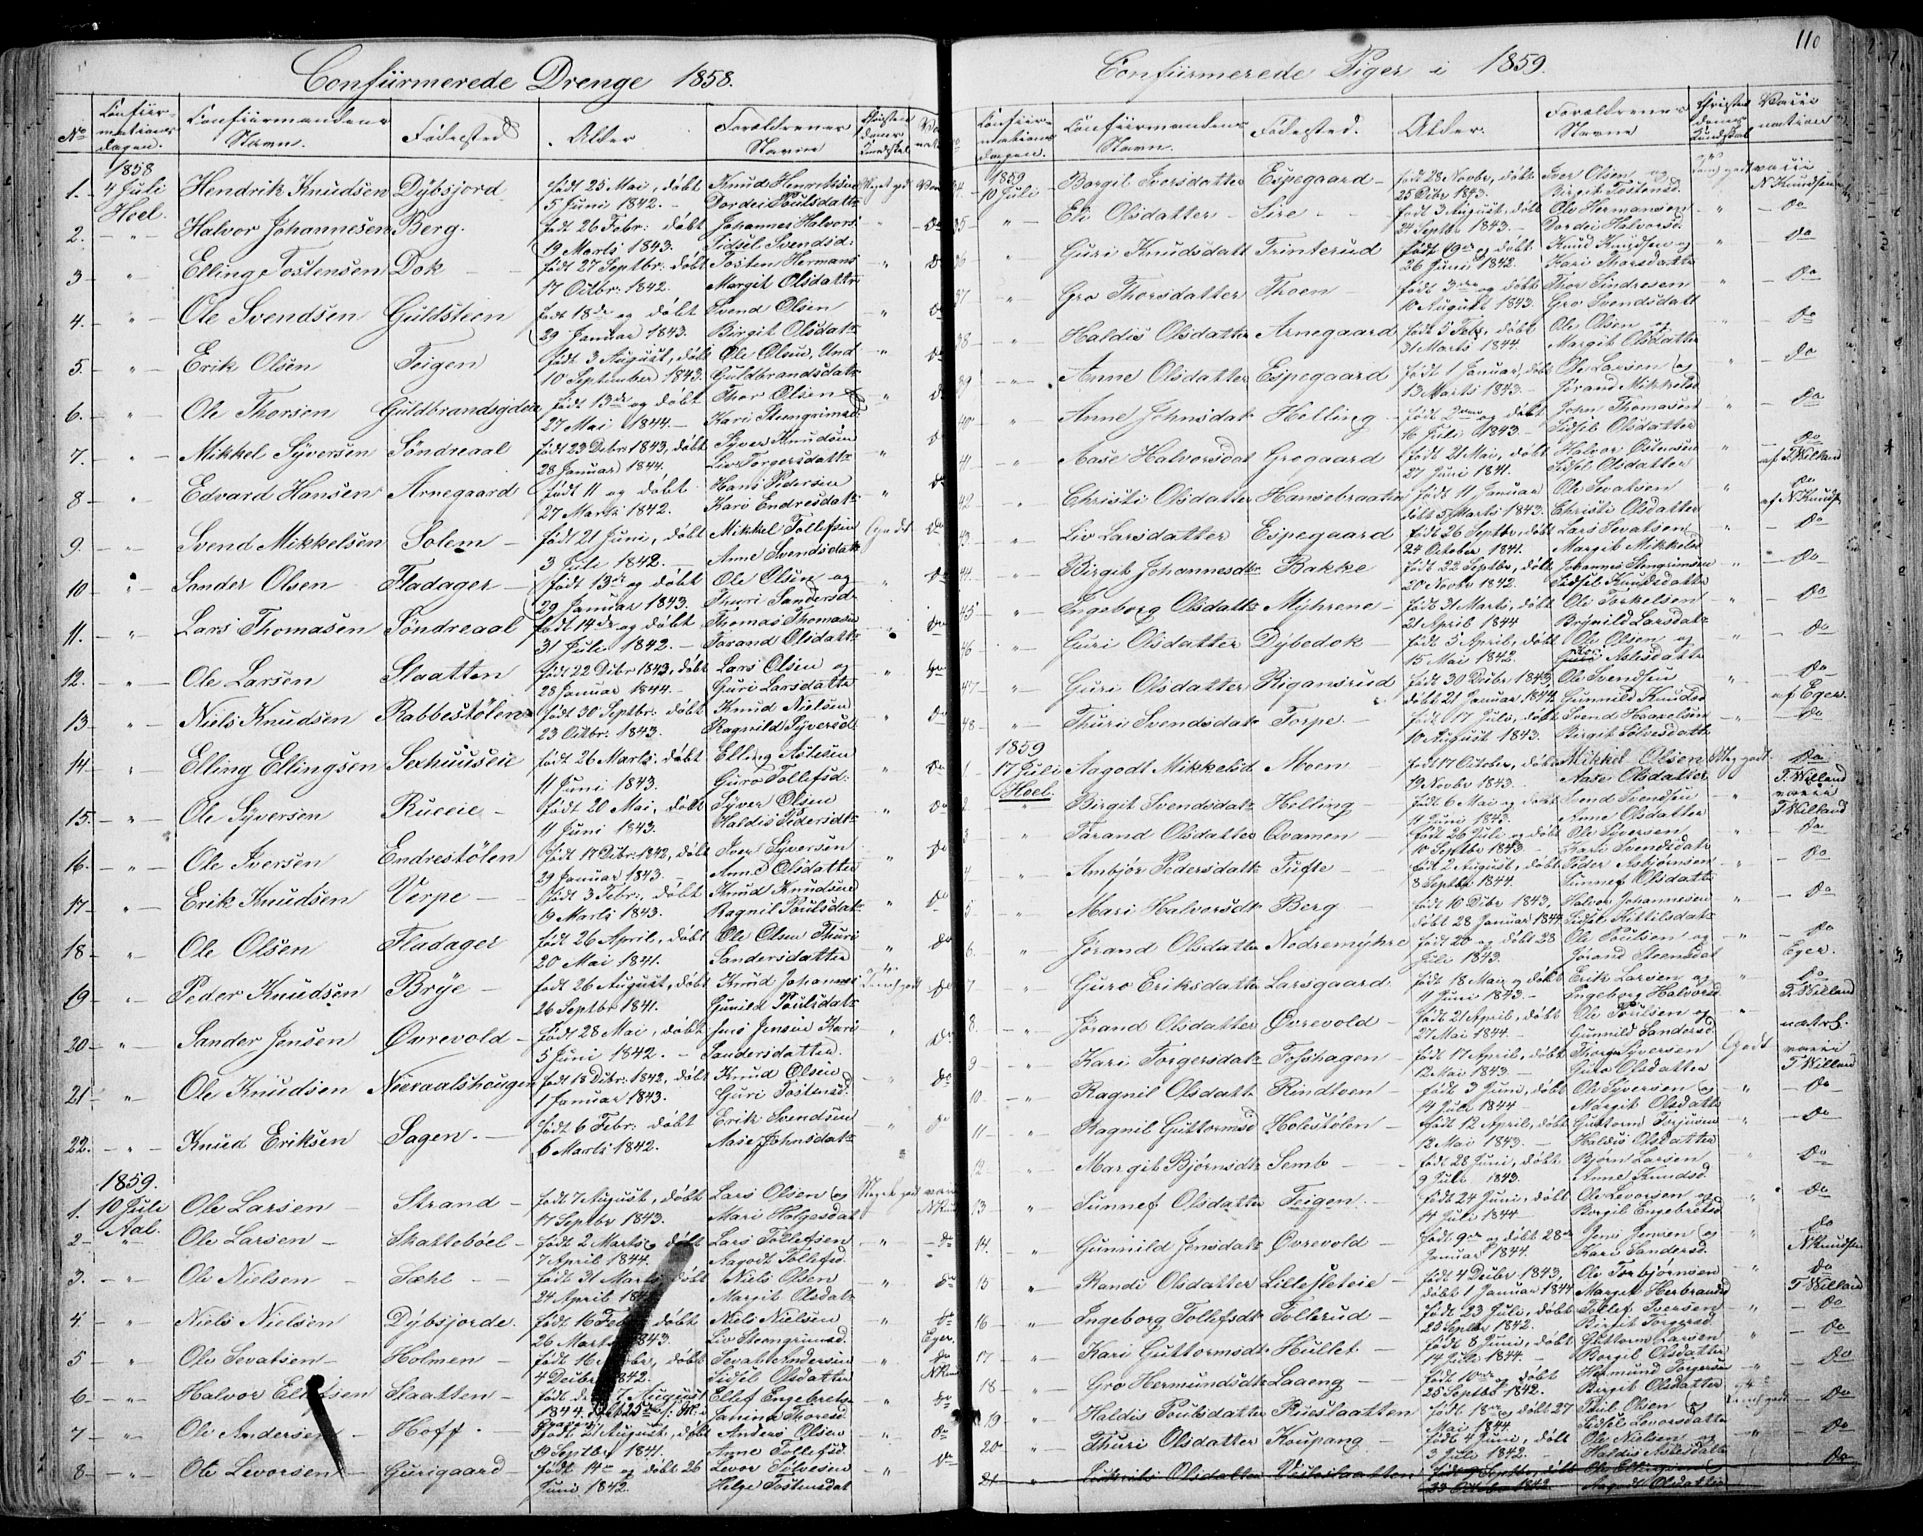 110
Confirmerede Drenge 1858.
No Confirmationsdagen. Confirmandens Navn. Fødested Alder Forældrenes Navne
1858
1. 4 Juli Hoel. Hendrik Knudsen Dybsjord født 25 Mai, døbt 5 Juni 1842. Knud Henriksen Dordei Poulsdatter Meget godt
2. Halvor Johannesen Berg. født 26 Febr: døbt 19 Marts 1843. Johannes Halvors. Sidsel Svendsd:
3. Elling Tostensen Dok født 27 Septbr: døbt 17 Octbr: 1842. Tosten Hermans Margit Olsdattr
4. Ole Svendsen Guldsteen født 18de og døbt 29 Januar 1843. Svend Olsen Birgit Olsdatr
5. Erik Olsen Teigen født 3 August, døbt 10 September 1843. Ole Olsen, Und Guldbrandsdatr
6. Ole Thorsen Guldbrandsgjerde født 13de og døbt 27 Mai 1844. Thor Olsen Kari Steengrimsd.
7. Mikkel Syversen Søndreaal født 23 Debr 1843, døbt 28 Januar 1844. Syver Knudsen Liv Torgersdattr
8 Edvard Hansen Arnegaard født 11 og døbt 27 Marts 1842. Hans Pedersen Kari Endresdatr
9. Svend Mikkelsen Solem født 21 Juni, døbt 3 Juli 1842. Mikkel Tollefsen Anne Svendsdatr Godt
10 Sander Olsen Fladager født 13de og døbt 29 Januar 1843. Ole Olsen og Thuri Sandersd.
11. Lars Thomasen Søndreaal født 14de og døbt 31 Juli 1842. Thomas Thomasen Jorand Olsdattr
12. Ole Larsen Slaatten født 22 Debr 1843, døbt 28 Januar 1844. Lars Olsen og Guri Larsdatter
13 Niels Knudsen Rabbestølen født 30 Septbr: døbt 23 Octbr: 1843. Knud Nielsen Ragnild Syversd
14 Elling Ellingsen Sexhuuseie født 26 Marts døbt 11 Juni 1843. Elling Astesen Guro Tollefsd:
15. Ole Syversen Rueeie født 20 Mai, døbt 11 Juni 1843. Syver Olsen Haldis Pedersdtr
16 Ole Iversen Endrestølen født 17 Debr: 1842, døbt 29 Januar 1843. Iver Syversen Anne Olsdatter
17 Erik Knudsen Verpe født 3 Febr: døbt 19 Marts 1843. Knud Knudsen Ragnil Poulsdatr
18 Ole Olsen Fladager født 26 April, døbt 20 Mai 1841. Ole Olsen Thuri Sandersdatter
19 Peder Knudsen Brye født 26 August, døbt 26 Septbr 1841. Knud Johannes Gunild Poulsdatr
20 Sander Jensen Øvrevold født 28 Mai, døbt 5 Juni 1842. Jens Jensen Kari Sandersdatter.
21 Ole Knudsen Nieraalshougen født 18 Debr: 1842, døbt 1 Januar 1843. Knud Olsen Guri Tostensd.
22. Knud Eriksen Sagen. født 6 Febr: døbt 6 Marts 1842. Erik Svendsen Aase Johnsdatr
1859.
1. 10 Juli Aal. Ole Larsen Strand født 7 August, døbt 17 Septbr 1843. Lars Olsen og Mari Helgesdat Meget godt
2 Ole Larsen Skattebøel født 2 Marts, døbt 7 April 1844. Lars Tollefsen Aagodt Tollefsd.
3. Ole Nielsen Sæhl født 31 Marts, døbt 24 April Niels Olsen Margit Olsdatr
4. Niels Nielsen Dybsjorde. født 16 Febr døbt 26 Marts 1843. Niels Nielsen Liv Steengrimsd. Eger.
5 Ole Sevatsen Holmen født 16 døbt 4 Decbr 1842. Sevat Andersen Sidsel Olsdatter
6 Halvor Ellefsen Slaatten født 7 August 1844. Ellef Engebretsen Thoresd.
7 Ole Andersen Hoff. født 21 August, døbt 19 Septbr 1841. Anders Olsen Anne Tollefsd.
8 Ole Levorsen Gurigaard født 14de og døbt 26 Juni 1842. Levor Silvesen Helge Tostensdat
Confirmerede Piger i 1859.
Confirmationsdagen. Confirmandens Navn. Fødested. Alder. Forældrenes Navne Christendoms Kundskab Vaccination
1859
34 10 Juli Borgil Iversdatter Espegaard født 28 Novbr, døbt 25 Debr 1843. Iver Olsen og Birgit Tostensd. vacci N Knudsen
35 Eli Olsdatter Sire født 3 August, døbt 24 Septbr 1843. Ole Hermansen Dordei Halvorsd. Do
36 Guri Knudsdatt Trinterud født 6de og døbt 26 Juni 1842. Knud Knudsen og Kari Thorsdatter Do
37 Gro Thorsdatter Thoen født 3de og døbt 10 August 1843. Thor Sindresen Gro Svendsdatt Do
38 Haldis Olsdatter Arnegaard født 5 Febr, døbt 31 Marts 1844. Ole Olsen og Margit Olsdatter Do
39 Anne Olsdatter Espegaard født 1 Januar, døbt 13 Marts 1843. Ole Larsen og Jørand Mikkelsd Do
40 Anne Johnsdatr Helling født 2den og døbt 16 Juli 1843. John Thomasen Sidsel Olsdatter Do
41 Aase Halvorsdat Grogaard født 21 Mai, døbt 27 Juni 1841. Halvor Østensen Sidsel Olsdatter Do af T. Willand
42 Christi Olsdatter Hansebraaten født 11 Januar døbt 5 Marts 1843. Ole Sevatsen Christi Olsdatter Do af N Knudsen
43 Liv Larsdatter Espegaard født 26 Septbr, døbt 24 October 1841. Lars Sevatsen Margit Mikkelsd Do
44 Birgit Johannesdtr Bakke født 22 Septbr, døbt 20 Novbr 1842. Johannes Stengrimsen Sidsel Knudsdatter Do
45 Ingeborg Olsdatr Myhrene født 31 Marts, døbt 21 April 1844 Ole Torkelsen Brynild Larsdatr Do
46 Guri Olsdatter Dybedok født 5 April, døbt 15 Mai 1842. Ole Olsen og Guri Aslesdatter Do
47 Guri Olsdatter Rigansrud født 30 Decbr 1843, døbt 21 Januar 1844. Ole Svendsen Gunnild Knudsd Do af Eger.
48 Thuri Svendsdatr Torpe født 17 Juli, døbt 10 August 1843. Svend Haagelsen Birgit Sølvesdatt Do
1859
1 17 Juli Hoel. Aagodt Mikkelsd Moen født 17 October, døbt 19 Novbr 1843. Mikkel Olsen Aase Olsdatter Meg. godt Do T. Willand
2 Birgit Svendsdatr Helling født 6 Mai og døbt 11 Juni 1843. Svend Svendsen Anne Olsdatter vacci T Willand
3 Jørand Olsdatter Qvamen født 26 Juli og døbt 10 Septbr 1843 Ole Syversen Kari Svendsdatr Do
4 Ambjør Pedersdatr Tufte født 2 August, døbt 8 Septbr 1844. Peder Asbjørnsen Sunnef Olsdatter Do
5 Mari Halvorsdtr Berg født 10 Debr 1843, døbt 28 Januar 1844. Halvor Johannesen Sidsel Kittilsdatr Do
6. Jørand Olsdatter Nedremyhre født 20 og døbt 28 Juli 1843. Ole Poulsen og Jørand Steensdat Do Eger.
7 Guro Eriksdatter Larsgaard født 18 Mai og døbt 11 Juni 1843. Erik Larsen og Ingeborg Halvorsd Do T. Willand
8. Jørand Olsdatter Øvrevold født 21 April, døbt 27 Mai 1844. Ole Poulsen og Gunnild Sandersd. natrl.
9 Kari Torgersdatr Tofshagen født 17 April, døbt 12 Mai 1843. Thorger Syversen Guro Olsdatter Godt vacci T Willand
10 Ragnil Olsdatt Rindtoen født 3 Juni, døbt 14 Juli 1844 Ole Syversen og Margit Olsdattr Do
11 Ragnil Guttormsd Holestølen født 12 April, døbt 12 Mai 1843. Guttorm Torjusen Haldis Olsdatter Do
12 Margit Bjørnsdtr Semb født 28 Juni, døbt 9 Juli 1843. Bjørn Larsen Anne Knudsd. Do
13 Sunnef Olsdatter Teigen. født 24 Juni, døbt 14 Juli 1844 Ole Levorsen og Borgil Engebretsd Do
14. Gunnild Jensdatr Øvrevold født 9de og døbt 28de Januar 1844. Jens Jensen og Kari Sandersd. Do N Knudsen
15 Randi Olsdatter Lillesleteie født 4 Decbr 1843, døbt 1 Januar 1844 Ole Torbjørnsen Margit Herbrandsd Do T Willand
16 Ingeborg Tollefsdtr Tollerud født 23 Juli, døbt 25 Septbr 1842. Tollef Iversen Birgit Torgersd. Do
17 Kari Guttormsdtr Hullet født 8 Juni, døbt 14 Juli 1844. Guttorm Larsen Borgil Olsdatter Do
18 Gro Hermundsdtr Laaeng født 10de og døbt 25 Septbr 1842. Hermund Torgersen Birgit Olsdatter Do
19 Haldis Poulsdatter Rueslaatten født 18de og døbt 27 Mai 1844 Poul Olsen og Sidsel Levorsdatter Do
20 Thuri Olsdatter Koupang født 4 Juni, døbt 3 Juli 1842. Ole Nielsen og Haldis Aslesdatt Do
21 Olsdatter Vesleslaatten født Septbr, døbt 23 Octbr 1842 Ole Ellingsen og Aagodt Olsdatter Do